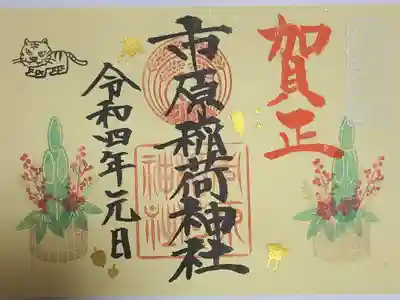 賀正
市原稲荷神社
令和四年元日